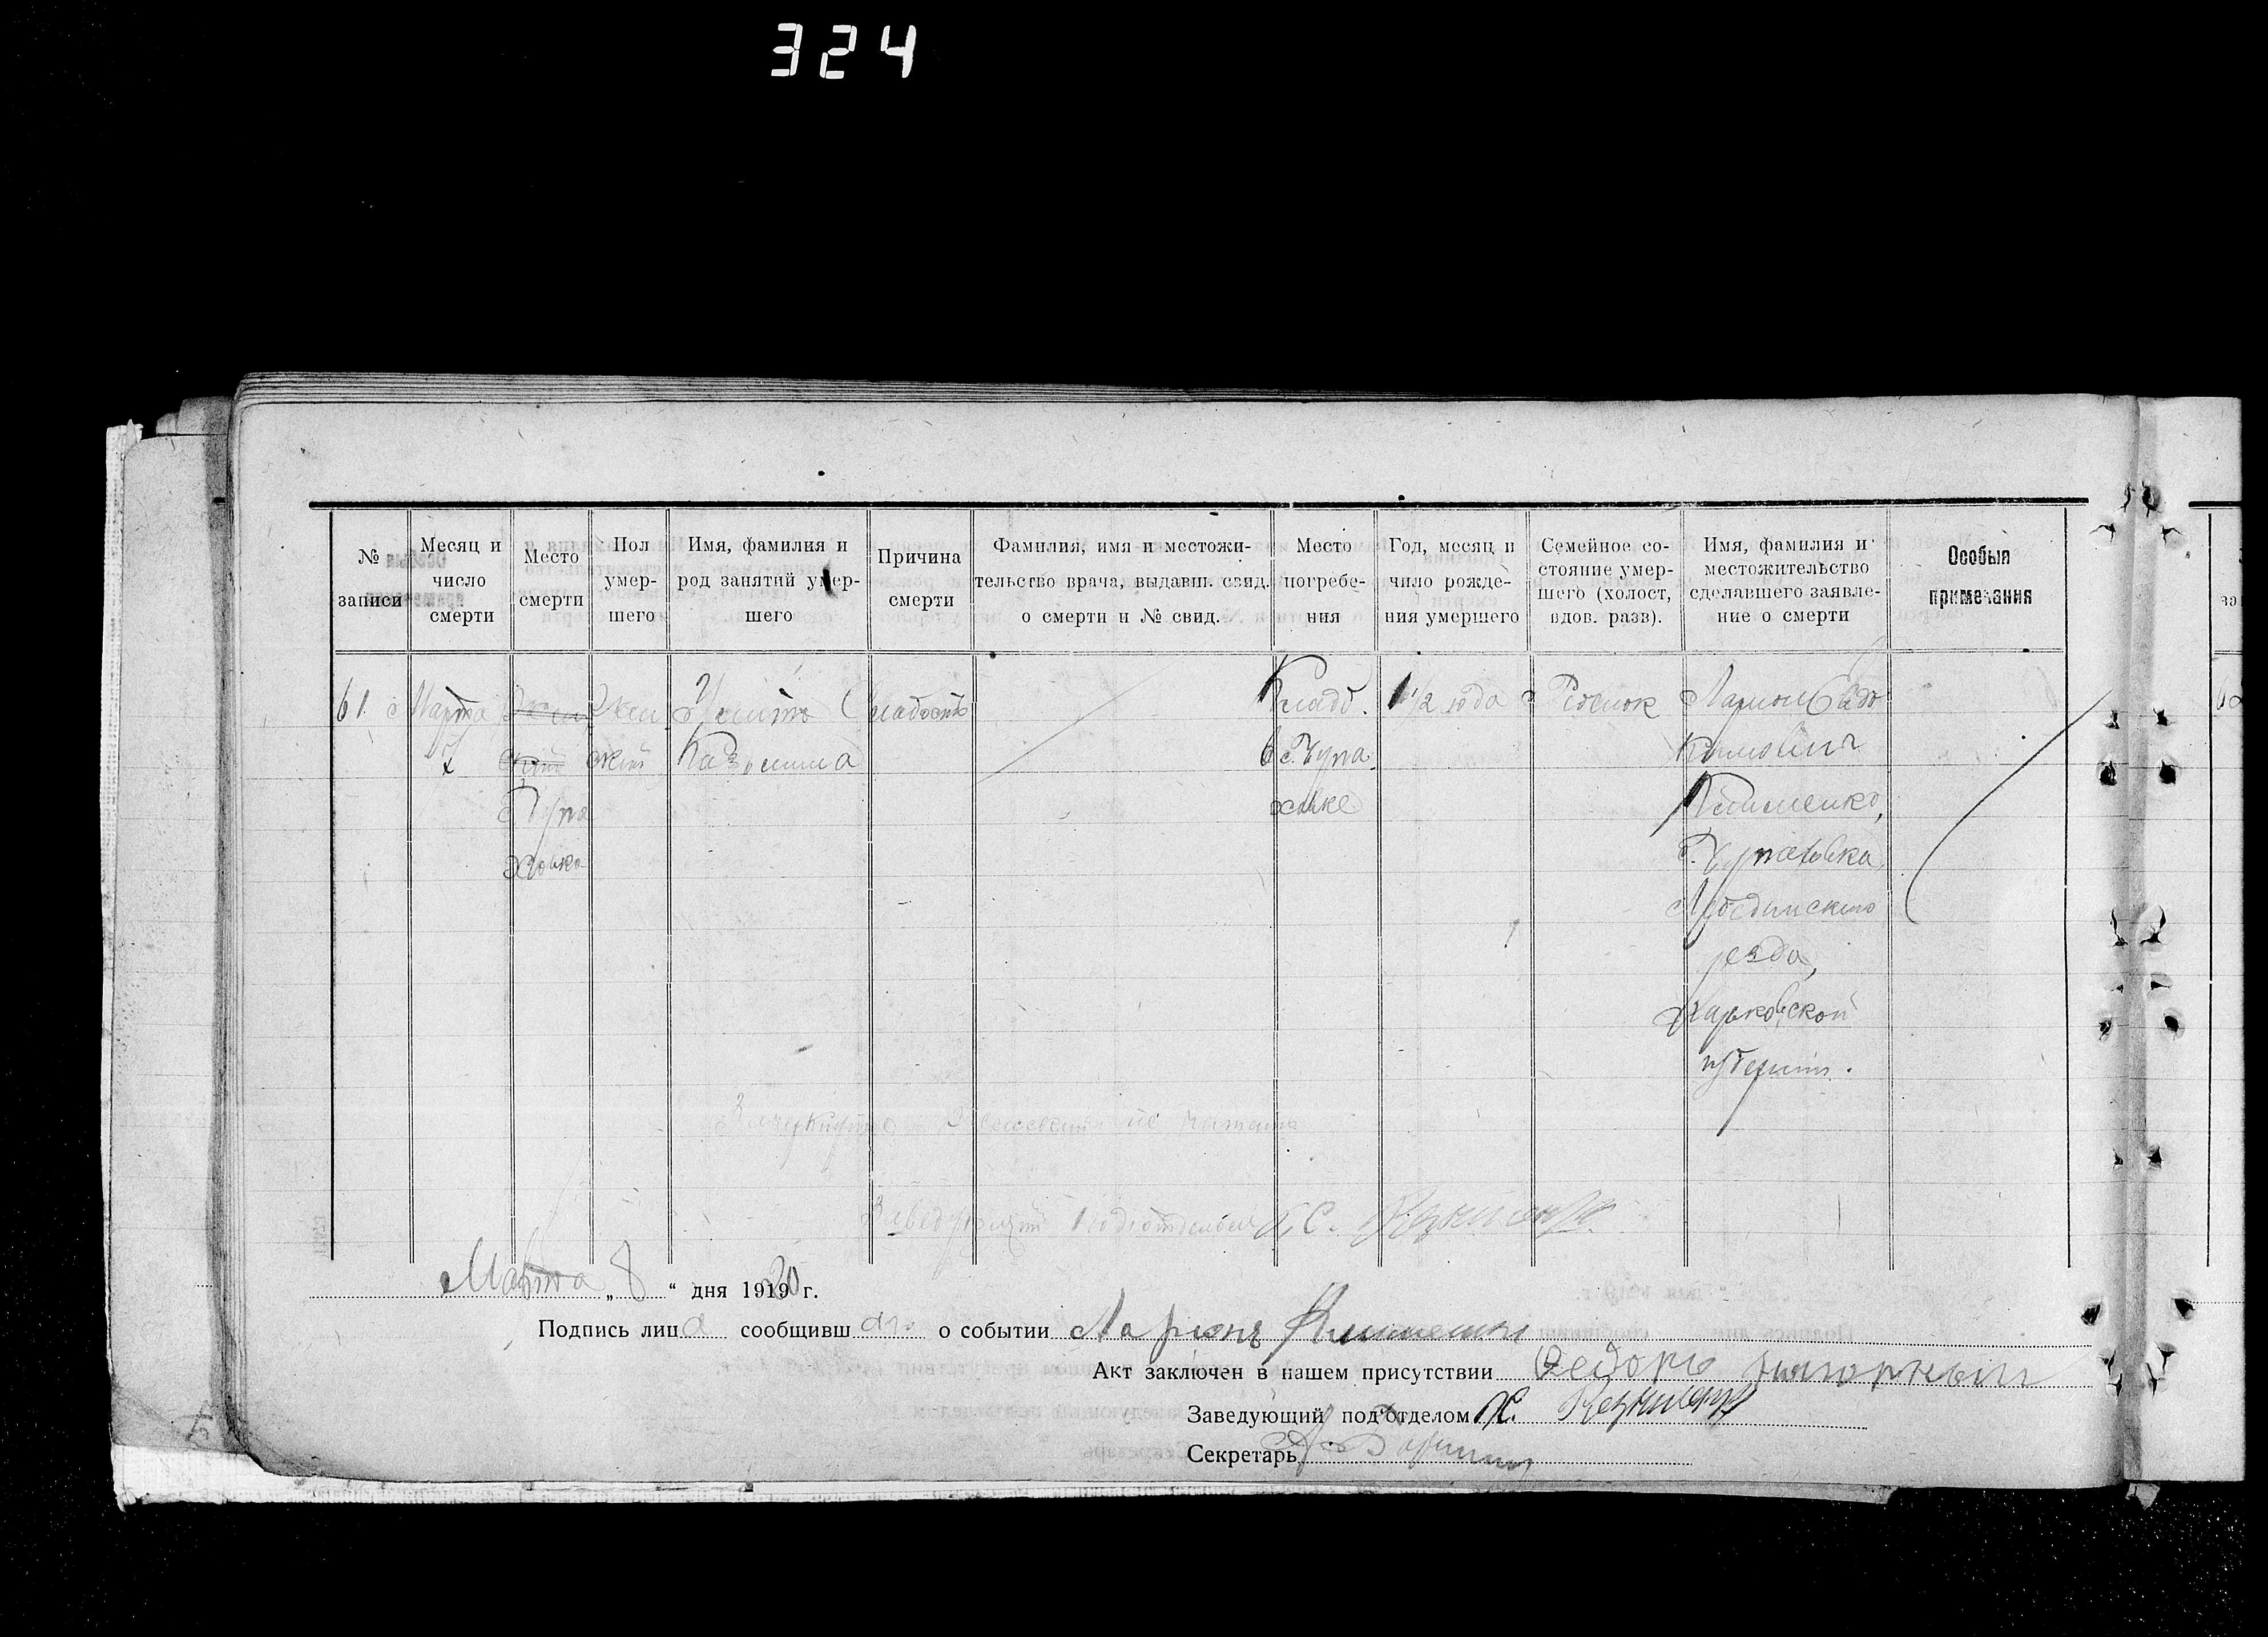 324
№ записи
Месяц и число смерти
Место смерти
Пол умер- шего
Имя, фамилия и род занятий умер- шего
Причина смерти
Фамилия, имя и местожи- тельство врача, выдавш. свид. о смерти и № свид.
Место погребе- ния
Год, месяц и число рожде- ния умершего
Семейное со- стояние умер- шего (холост, вдов. разв).
Имя, фамилия и местожительство сделавшего заявле- ние о смерти
Особыя примечания
61.
Марта
Жен
ский
С. Чупа
ховка
Жен
ский
Слабость
Кладб.
в с. Чупа
ховке
1 1/2 года
Ребенок
Ларион Евдо
кимович
Клименко,
С. Чупаховка
Лебединскаго
уезда,
Харьковской
губернии.
Зачеркнуто Женский не читать
Заведующий Подотделом
Марта „ 8 “ дня 1920 г.
Подпись лица сообщивш аго о событии Ларионъ Клименко
Акт заключен в нашем присутствии Федоръ
Заведующий под'отделом
Секретарь